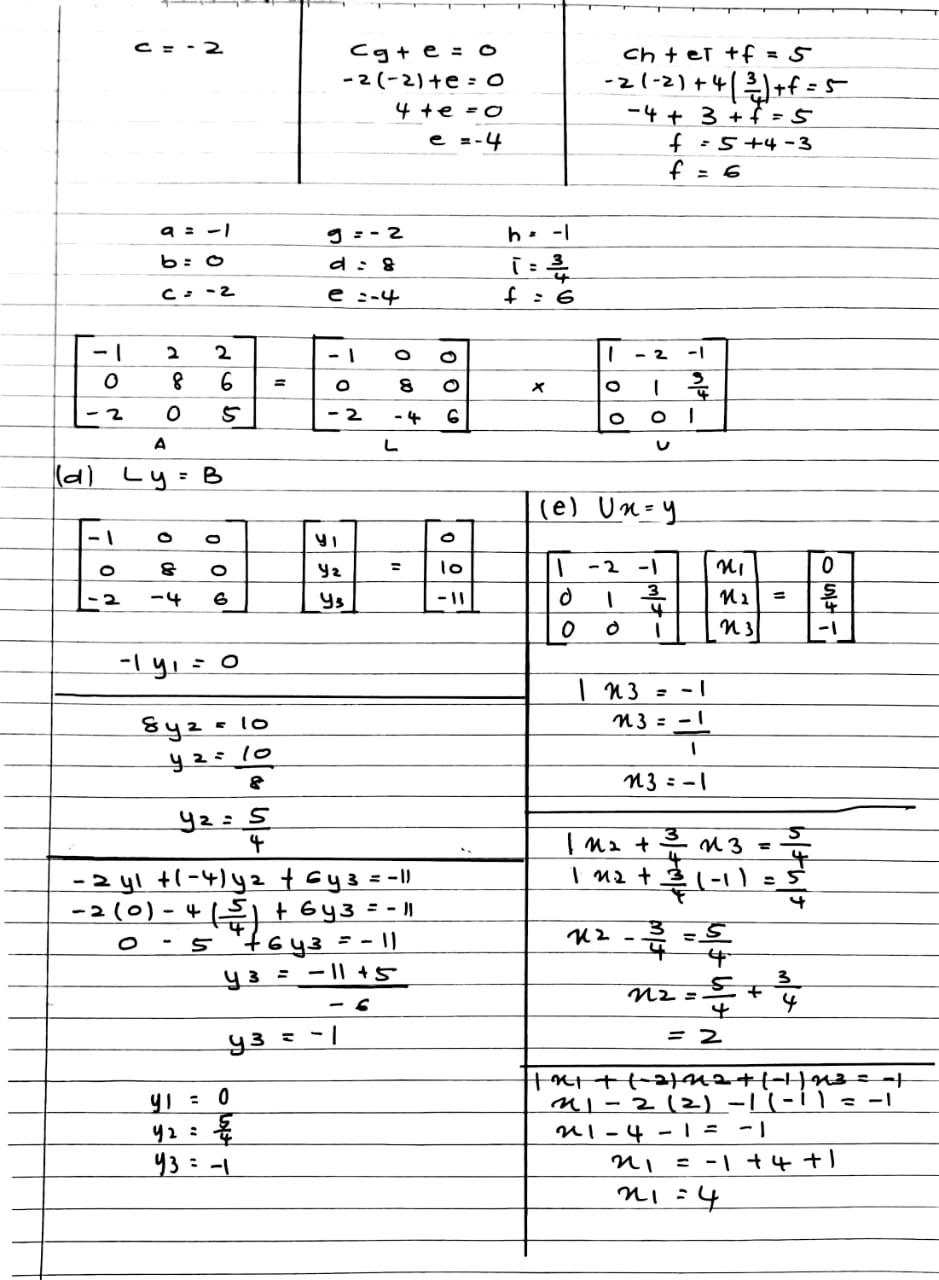 c = -2
cg + e = 0
-2(-2) + e = 0
4 + e = 0
e = -4
ch + ei + f = 5
-2(-2) + 4(3/4) + f = 5
-4 + 3 + f = 5
f = 5 + 4 - 3
f = 6
a = -1 g = -2 h = -1
b = 0 d = 8 i = 3/4
c = -2 e = -4 f = 6
[-1 2 2] [-1 0 0] [1 -2 -1]
[0 8 6] = [0 8 0] × [0 1 3/4]
[-2 0 5] [-2 -4 6] [0 0 1]
A L U
(d) Ly = B
[-1 0 0] [y1] [0]
[0 8 0] [y2] = [10]
[-2 -4 6] [y3] [-11]
-1y1 = 0
8y2 = 10
y2 = 10/8
y2 = 5/4
-2y1 + (-4)y2 + 6y3 = -11
-2(0) - 4(5/4) + 6y3 = -11
0 - 5 + 6y3 = -11
y3 = -11 + 5 / -6
y3 = -1
y1 = 0
y2 = 5/4
y3 = -1
(e) Ux = y
[1 -2 -1] [x1] [0]
[0 1 3/4] [x2] = [5/4]
[0 0 1] [x3] [-1]
1x3 = -1
x3 = -1/1
x3 = -1
1x2 + 3/4 x3 = 5/4
1x2 + 3/4(-1) = 5/4
x2 - 3/4 = 5/4
x2 = 5/4 + 3/4
= 2
1x1 + (-2)x2 + (-1)x3 = -1
x1 - 2(2) - 1(-1) = -1
x1 - 4 - 1 = -1
x1 = -1 + 4 + 1
x1 = 4